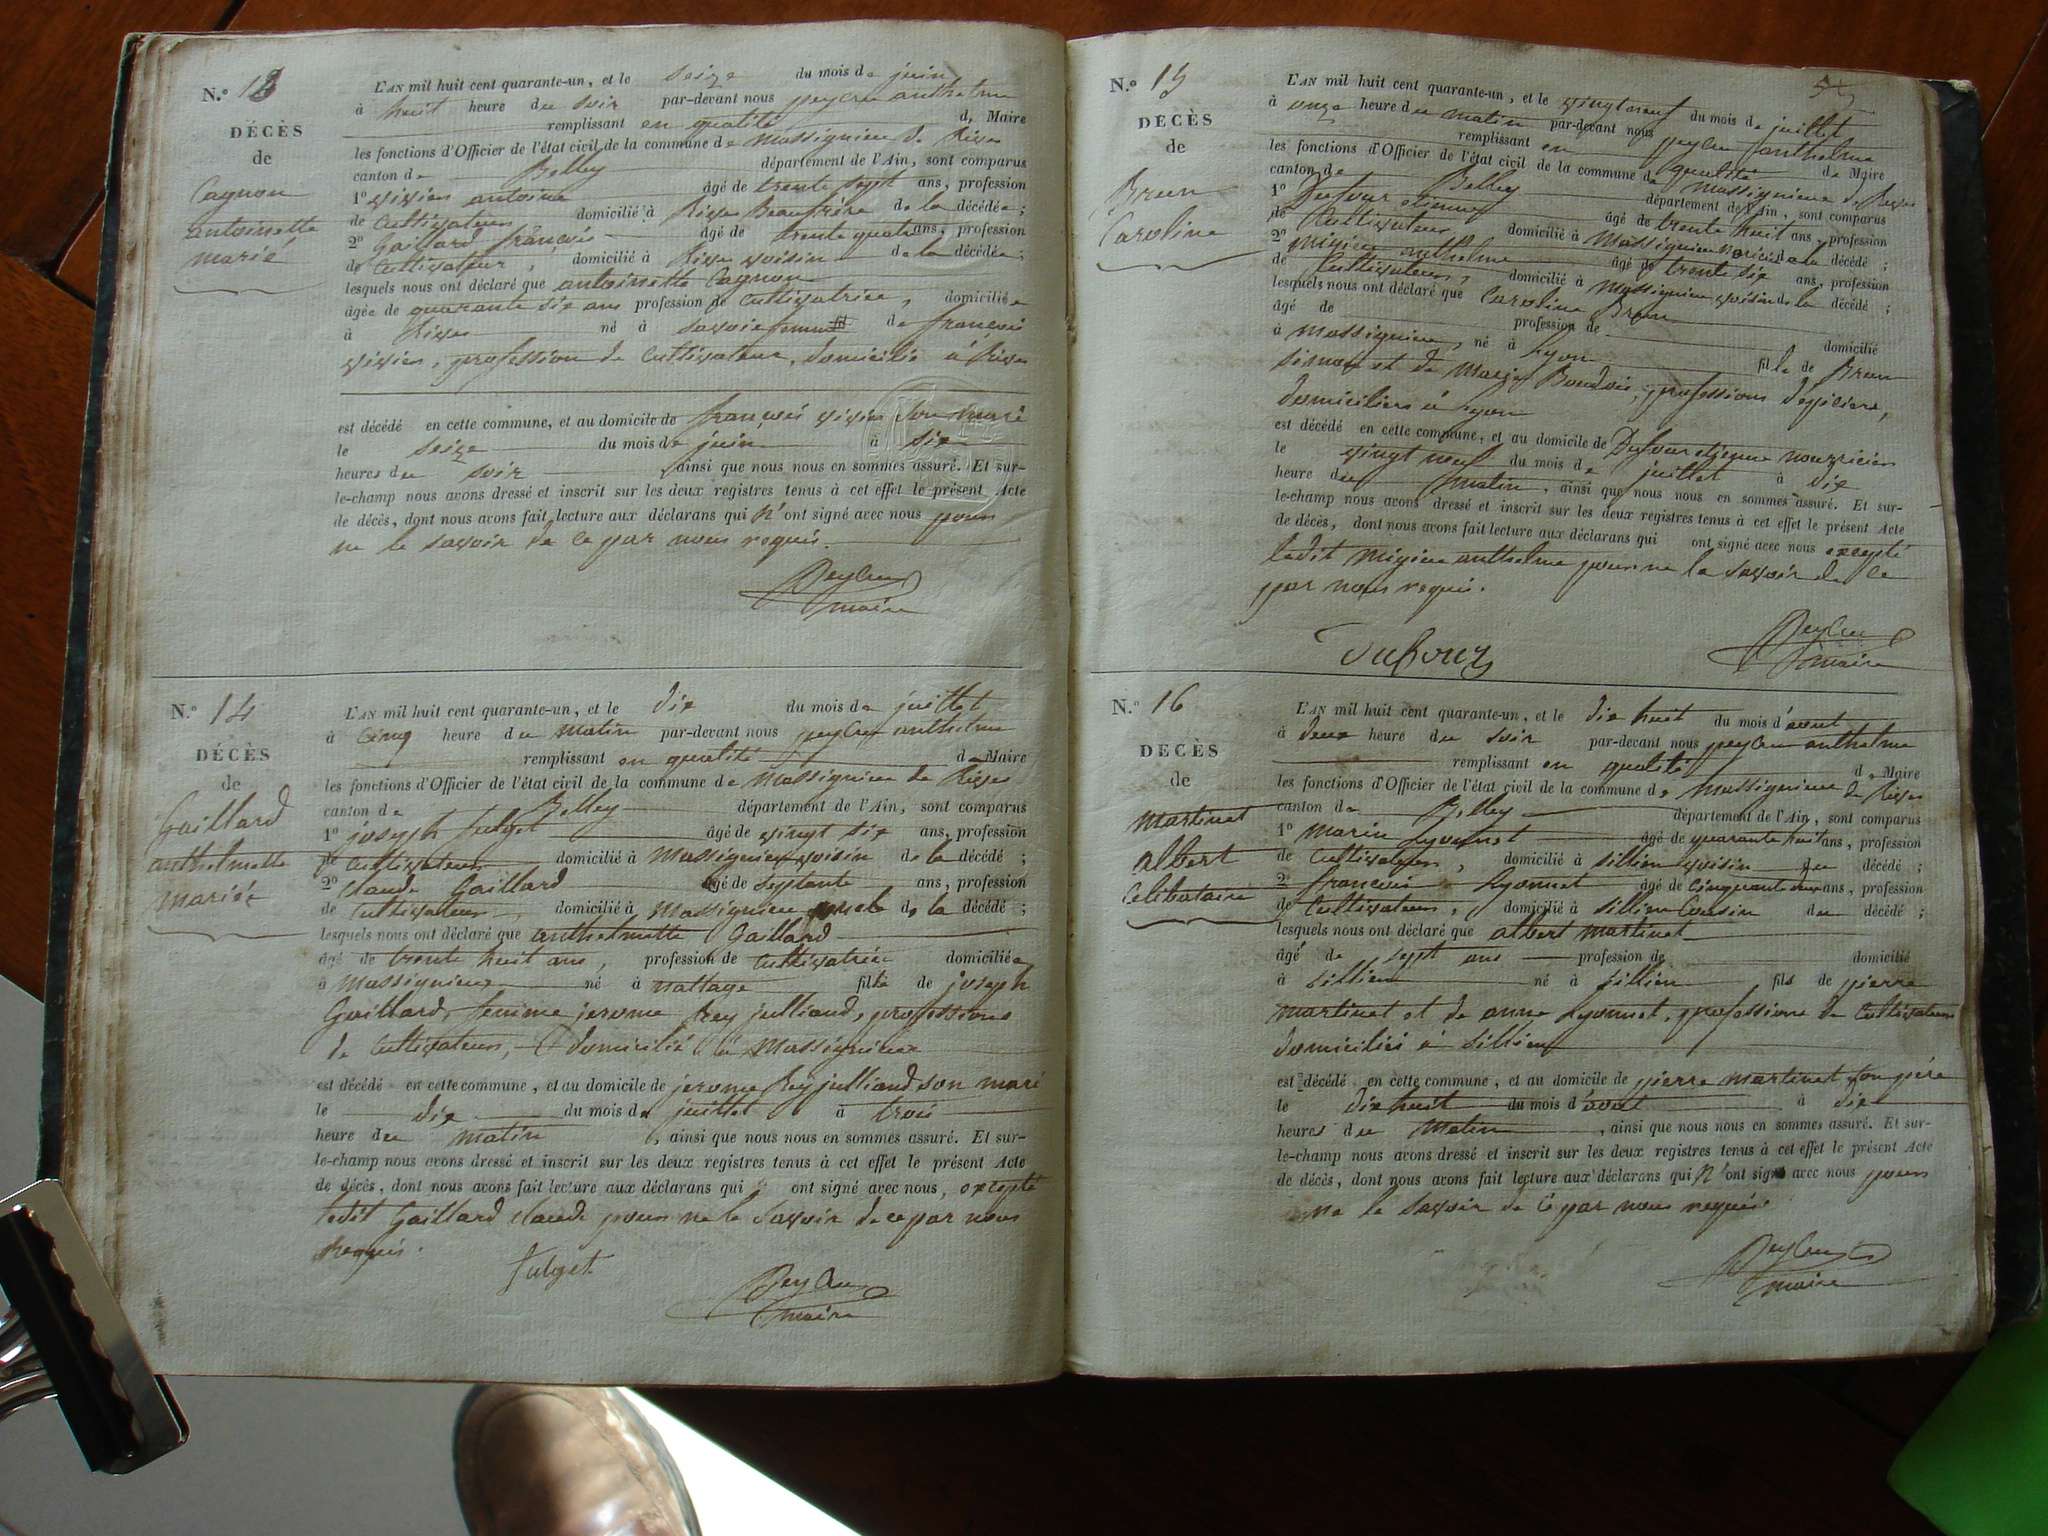 N.° 13
DÉCÈS
de
Cagnon
antoinette
marié
L'AN mil huit cent quarante-un, et le seize du mois de juin
à huit heure du soir par-devant nous peysson anthelme
remplissant en qualité de Maire
les fonctions d'Officier de l'état civil de la commune de Massignieu de Rives
canton de Belley département de l'Ain, sont comparus
1° vivien antoine âgé de trente sept ans, profession
de Cultivateur domicilié à Rives Beaufrère de la décédée ;
2° Gaillard françois âgé de trente quatre ans, profession
de Cultivateur, domicilié à Rives voisin de la décédée ;
lesquels nous ont déclaré que antoinette Cagnon
âgée de quarante six ans profession de Cultivatrice, domiciliée
à Rives né à savoie femme de françois
vivien, profession de Cultivateur, domicilié à Rives
est décédé en cette commune, et au domicile de françois vivien son mari
le seize du mois de juin à six
heures du soir ainsi que nous nous en sommes assuré. Et sur-
le-champ nous avons dressé et inscrit sur les deux registres tenus à cet effet le présent Acte
de décès, dont nous avons fait lecture aux déclarans qui n'ont signé avec nous pour
ne le savoir de ce par nous requis.
maire
N.° 14
DÉCÈS
de
Gaillard
anthelmette
mariée
L'AN mil huit cent quarante-un, et le dix du mois de juillet
à cinq heure du matin par-devant nous anthelme
remplissant en qualité de Maire
les fonctions d'Officier de l'état civil de la commune de Massignieu de Rives
canton de Belley département de l'Ain, sont comparus
1° joseph fulget âgé de vingt six ans, profession
de Cultivateur domicilié à Massignieu voisin de la décédé ;
2° claude Gaillard âgé de septante ans, profession
de Cultivateur, domicilié à Massignieu oncle de la décédé ;
lesquels nous ont déclaré que anthelmette Gaillard
âgé de trente huit ans, profession de Cultivatrice domiciliée
à Massignieu né à nattage fille de joseph
Gaillard, femme jerome Rey julliand, professions
de Cultivateur, domicilié à Massignieu
est décédé en cette commune, et au domicile de jerome Rey julliand son mari
le dix du mois de juillet à trois
heure du matin, ainsi que nous nous en sommes assuré. Et sur-
le-champ nous avons dressé et inscrit sur les deux registres tenus à cet effet le présent Acte
de décès, dont nous avons fait lecture aux déclarans qui ont signé avec nous, excepté
ledit Gaillard claude pour ne le savoir de ce par nous
requis.
fulget
maire
N.° 15
DÉCÈS
de
Brun
Caroline
L'AN mil huit cent quarante-un, et le vingt neuf du mois de juillet
à onze heure du matin par-devant nous anthelme
remplissant en qualité de Maire
les fonctions d'Officier de l'état civil de la commune de Massignieu de Rives
canton de Belley département de l'Ain, sont comparus
1° Dufour etienne âgé de trente huit ans, profession
de Cultivateur domicilié à Massignieu nouricier de la décédé ;
2° migieu anthelme âgé de trente six ans, profession
de Cultivateur, domicilié à Massignieu voisin de la décédé ;
lesquels nous ont déclaré que Caroline Brun
âgé de profession de domicilié
à Massignieu, né à Lyon fille de Brun
simon et de Marie Boudois, professions d'epiciers,
domiciliers à Lyon
est décédé en cette commune, et au domicile de Dufour etienne nourricier
le vingt neuf du mois de juillet à dix
heure du matin, ainsi que nous nous en sommes assuré. Et sur-
le-champ nous avons dressé et inscrit sur les deux registres tenus à cet effet le présent Acte
de décès, dont nous avons fait lecture aux déclarans qui ont signé avec nous excepté
ledit migieu anthelme pour ne le savoir de ce
par nous requis.
Dufour
maire
N.° 16
DÉCÈS
de
martinet
albert
célibataire
L'AN mil huit cent quarante-un, et le dix huit du mois d'aout
à deux heure du soir par-devant nous anthelme
remplissant en qualité de Maire
les fonctions d'Officier de l'état civil de la commune de Massignieu de Rives
canton de Belley département de l'Ain, sont comparus
1° marin Lyonnet âgé de quarante huit ans, profession
de Cultivateur, domicilié à sillieu voisin du décédé ;
2° francois Lyonnet âgé de cinquante deux ans, profession
de Cultivateur, domicilié à sillieu Cousin du décédé ;
lesquels nous ont déclaré que albert martinet
âgé de sept ans profession de domicilié
à sillieu né à sillieu fils de pierre
martinet et de anne Lyonnet, professions de Cultivateurs
domiciliés à sillieu
est décédé en cette commune, et au domicile de pierre martinet son père
le dix huit du mois d'aout à dix
heures du matin, ainsi que nous nous en sommes assuré. Et sur-
le-champ nous avons dressé et inscrit sur les deux registres tenus à cet effet le présent Acte
de décès, dont nous avons fait lecture aux déclarans qui n'ont signé avec nous pour
ne le savoir de ce par nous requis.
maire